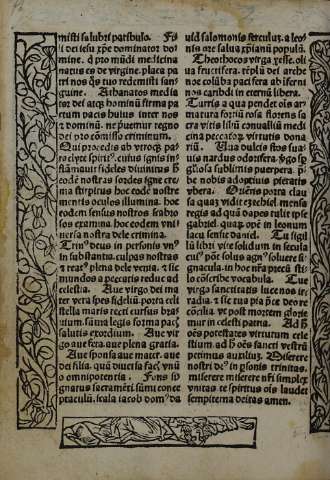 misti salubri patibulo. Fi
li dei iesu xp̄e dominator do
mine. q̄ pro mūdi medicina
natus es de virgine. placa pa
tri nos q̄s tuo redemisti san
guine. Athanatos media
tor dei atq̄ hominū firma pa
ctum pacis huius inter nos
τ dominū. ne puemur regno
dei pro cōmisso criminum.
Qui procedis ab vtroq̄. pa
raclyte spirit⁹. cuius ignis in
flāmauit fideles diuinius h̄
eodē nostras sordes igne cre
ma stirpitus hoc eodē nostre
mentis oculos illumina. hoc
eodem sensus nostros scabro
sos examina. hoc eodem vni
uersa tu crimina.
Trin⁹ deus in personis vn⁹
in substantia. culpas nostras
τ reat⁹ plena dele venia. τ sic
mundos a peccatis reduc ad
celestia. Aue virgo dei ma
ter vera spes fideliū. porta celi
stella maris recti cursus bra
uium. summa legis forma pacꝭ
salutis exordium. Aue vir
go aue fera. aue plena gratia.
Aue sponsa aue mater. aue
dei filia. quā diuersa facꝭ vnū
omnipotentia. Fons si
gnatus sacramēti summi conce
ptaculū. scala iacob dom⁹ da
uid salomonis ferculuꝫ. a leo
nis ore salua xp̄ianū populū.
Theothocos virga yesse. oli
ua fructifera. tēplū dei arche
noe colūba pacifera ab infern
nos caribdi in eternū libera.
Turris a qua pendet oīs ar
matura fortiū rosa florens sa
cra vitis liliū conualliū medi
cina peccatoꝝ. virtutis dona
riū. Uua dulcis flos sua
uis nardus odorifera. ꝟgo sp̄
gloria sublimis puerpera. p̄
be nobis adoptiuis pietatis
vbera. Oriens porta clau
sa quaꝫ vidit ezechiel. mensa
regis ad quā dapes tulit ipse
gabriel. quaꝫ opē in leonum
lacu sentit daniel. Tu sigil
lū libri viue solidum in secula
cui⁹ pōt solus agn⁹ soluere si
gnacula. in hoc nr̄a pctā sti
lo cōscribe vocabula. Tue
virgo sanctitatis luce nos ir
radia. τ sic tua pia p̄ce deo re
cōcilia. vt post mortem glorie
mur in celesti patria. Ad h̄
oēs potestates virtutum cele
stium. ad h̄ oēs sancti vestrū
petimus auxiliuꝫ. Miserere
nostri de⁹ in p̄sonis trinitas.
miserere miserere nr̄i simplex
vnitas te spiritus oīs laudet
sempiterna deitas amen.